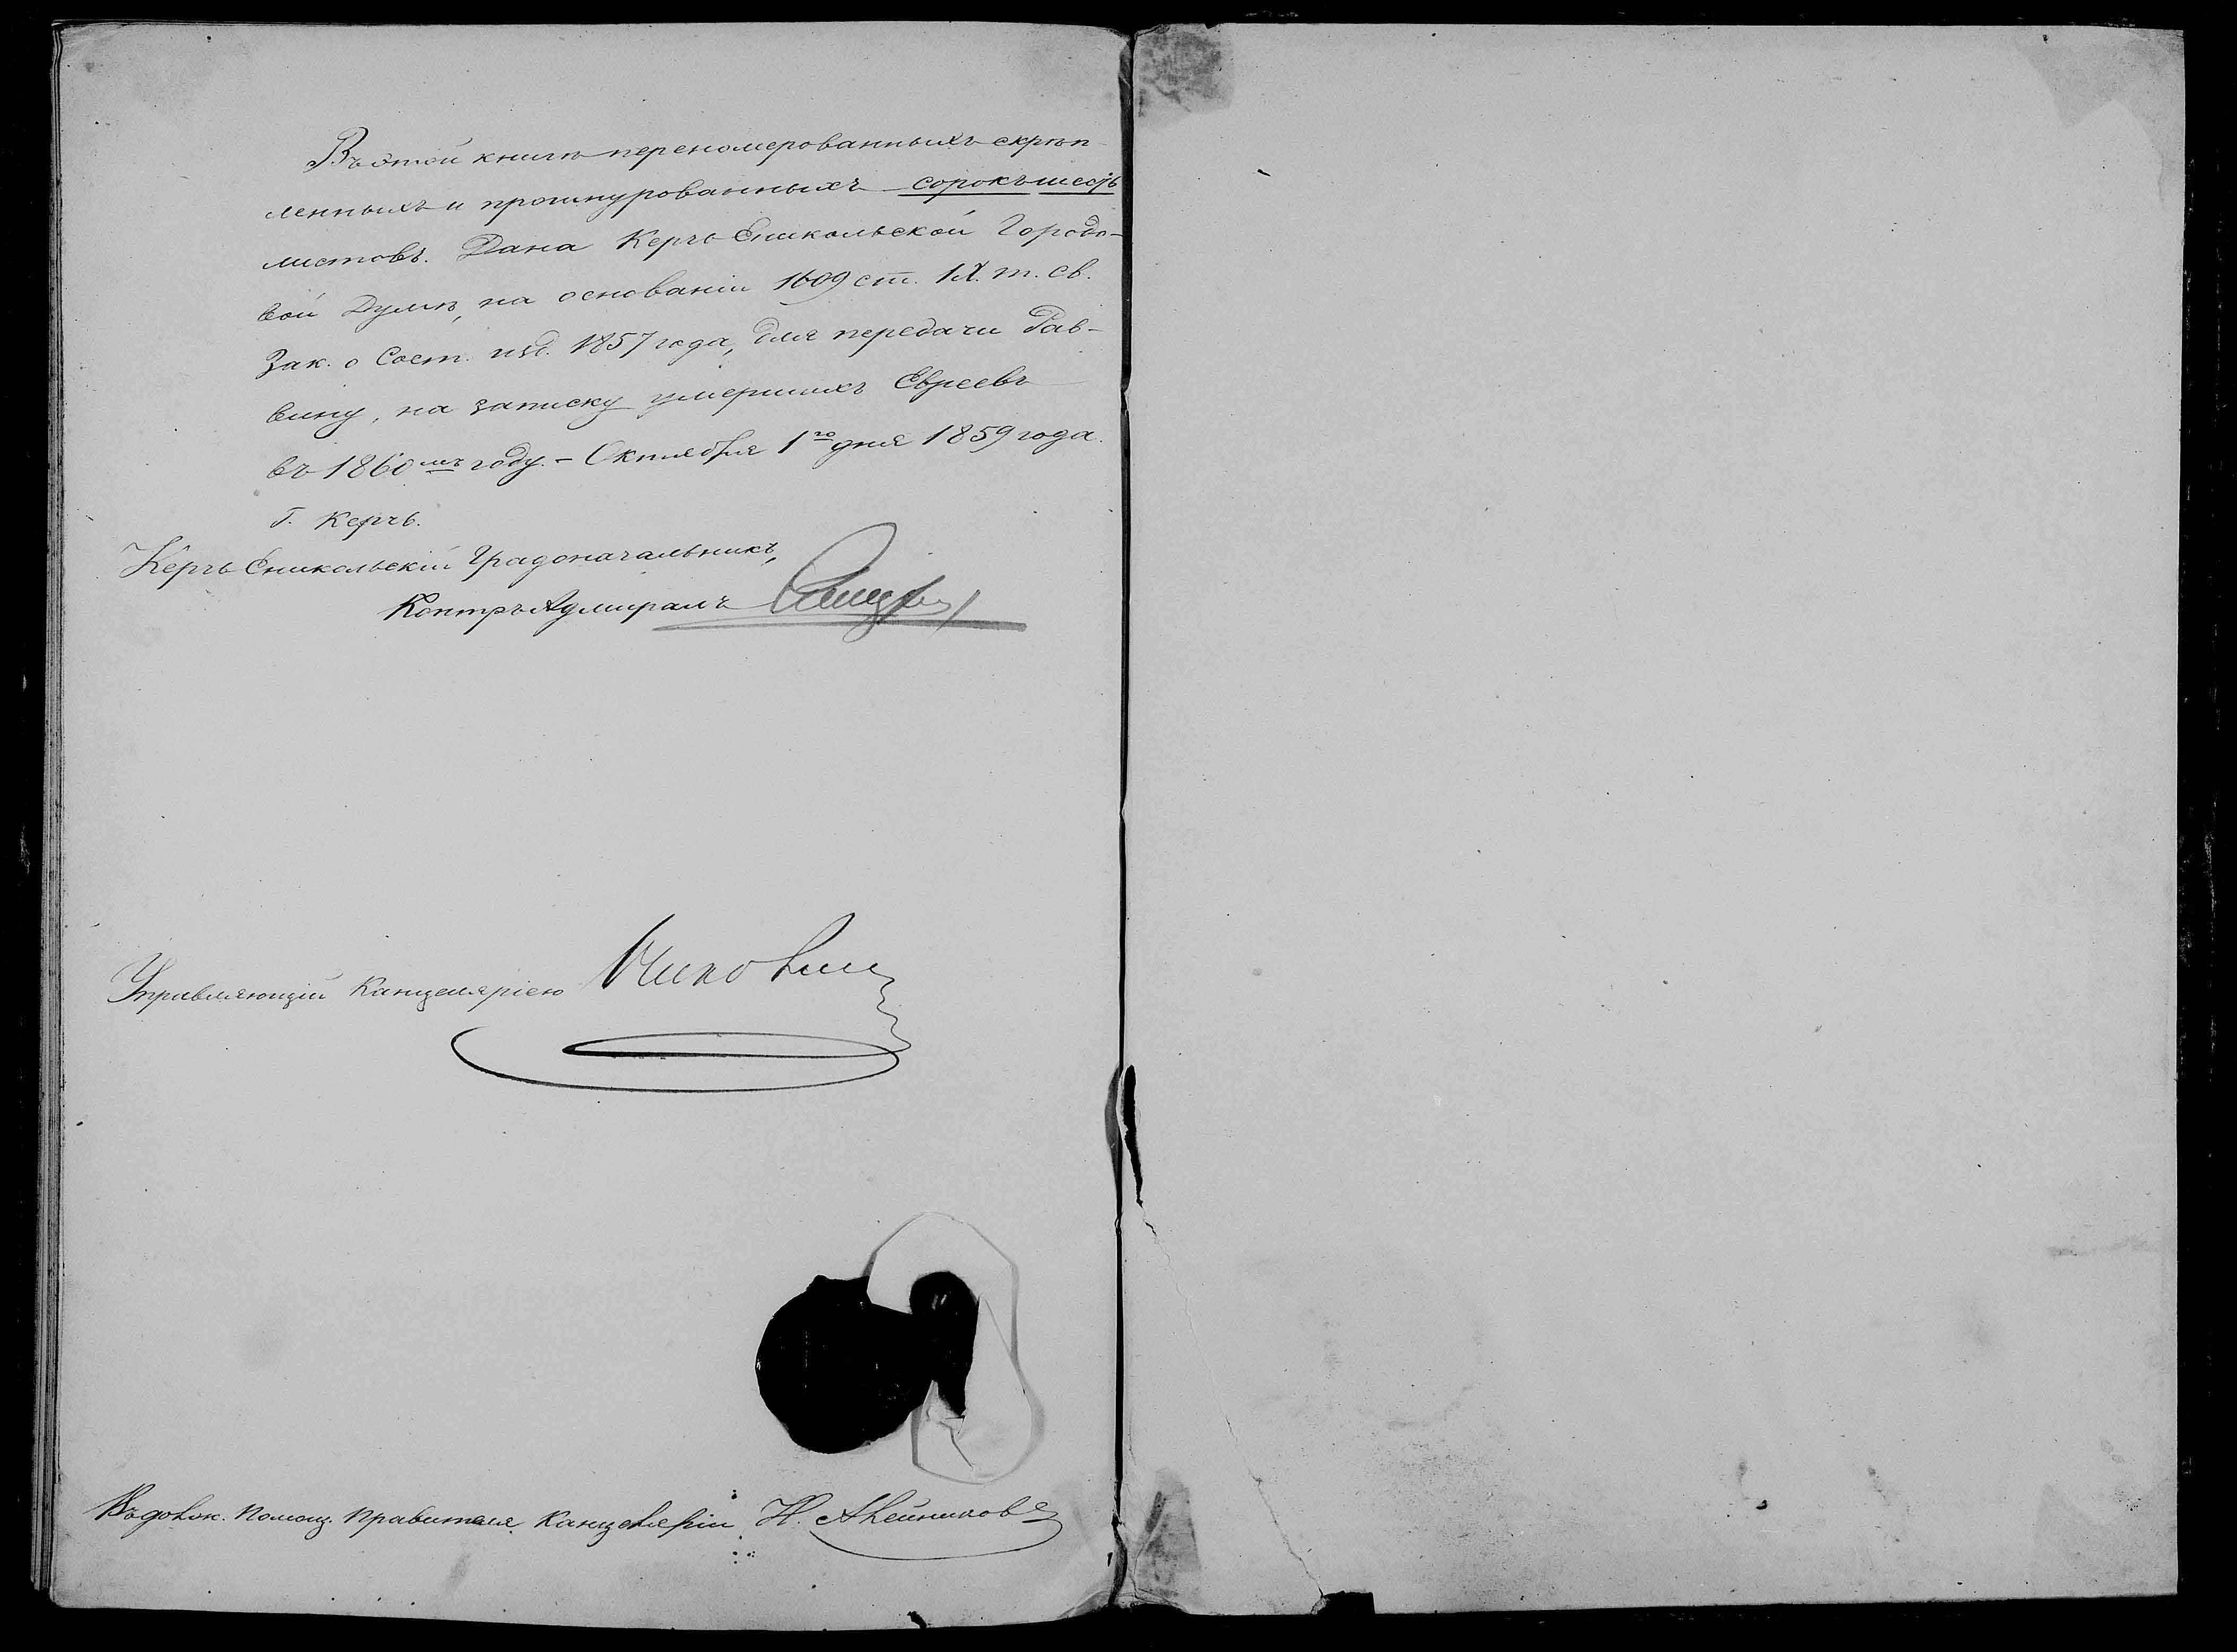 Въ этой книгѣ перенумерованныхъ скрѣп-
ленныхъ и прошнурованныхъ сорокъ шесть
листовъ. Дана Керчь Еникольской Городо-
вой Думѣ, на основаніи 1609 ст. IX. т. Св.
Зак. о Сост. изд. 1857 года, для передачи Рав-
вину, на записку умершихъ Евреевъ
въ 1860мъ году. – Октября 1го дня 1859 года.
Г. Керчь.
Керчь Еникольскій Градоначальникъ,
Контръ Адмиралъ
Управляющій Канцеляріею
Помощ. Правителя Канцеляріи Н.